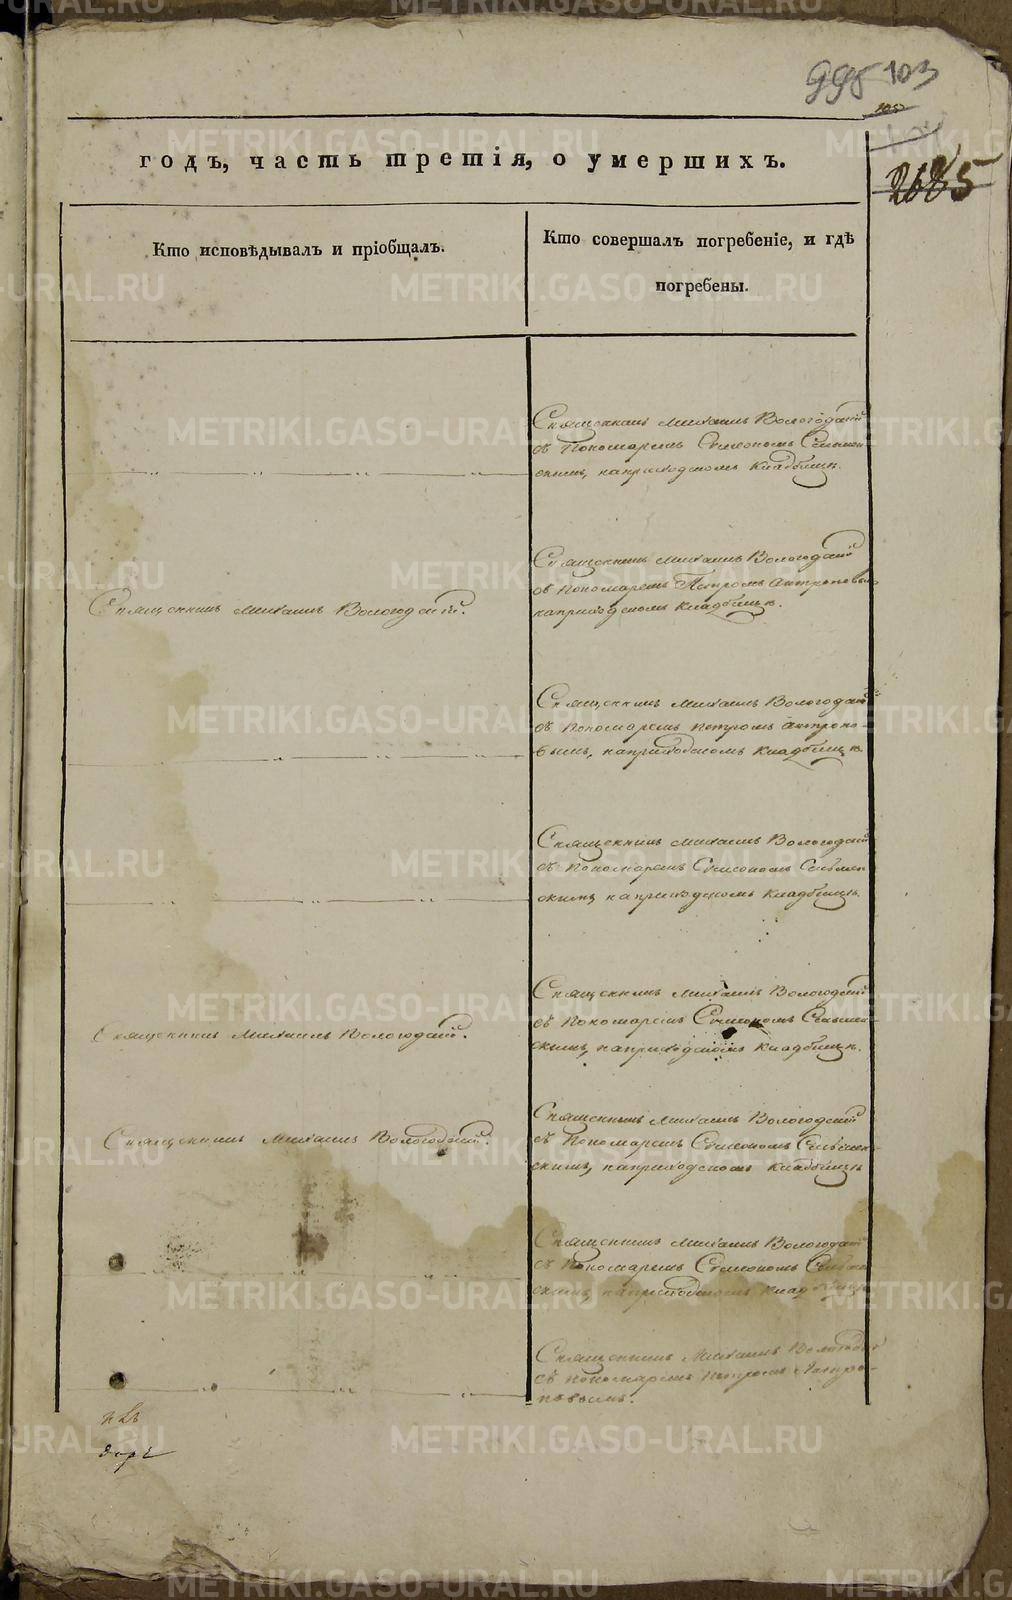 103
2685
годъ, часть третія, о умершихъ.
Кто исповѣдывалъ и пріобщалъ.
Кто совершалъ погребеніе, и гдѣ
погребены.
Священникъ Михаилъ Вологодскій
съ Пономаремъ Стефаномъ
скимъ, на приходскомъ кладбищѣ.
Священникъ Михаилъ Вологодскій.
Священникъ Михаилъ Вологодскій
съ пономаремъ Петромъ Антроповымъ
на приходскомъ кладбищѣ.
Священникъ Михаилъ Вологодскій
съ пономаремъ Петромъ Антропо-
вымъ, на приходскомъ кладбищѣ.
Священникъ Михаилъ Вологодскій
съ Пономаремъ
скимъ на приходскомъ кладбищѣ.
Священникъ Михаилъ Вологодскій.
Священникъ Михаилъ Вологодскій
съ Пономаремъ
скимъ, на приходскомъ кладбищѣ.
Священникъ Михаилъ Вологодскій.
Священникъ Михаилъ Вологодскій
съ Пономаремъ
скимъ, на приходскомъ кладбищѣ
Священникъ Михаилъ Вологодскій
съ Пономаремъ
скимъ на приходскомъ кладбищѣ
Священникъ Михаилъ Вологодскій
съ пономаремъ Петромъ Антро-
повымъ.
METRIKI.GASO-URAL.RU